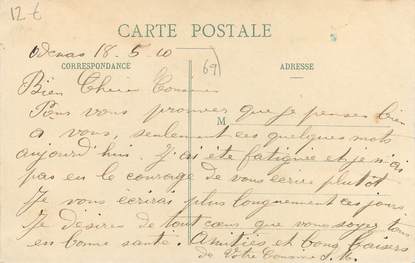 12 €
CARTE POSTALE
Odenas 18-5-10
69
CORRESPONDANCE
ADRESSE
Bien Chere Cousine
M
Pour vous prouver que je pense bien
a vous, seulement ces quelques mots
aujourd'hui. J'ai été fatiguée et je n'ai
pas eu le courage de vous écrire plutôt
Je vous écrirai plus longuement ces jours
Je désires de tout cœur que vous soyez tous
en bonne santé. Amitiés et bons baisers
de Votre Cousine